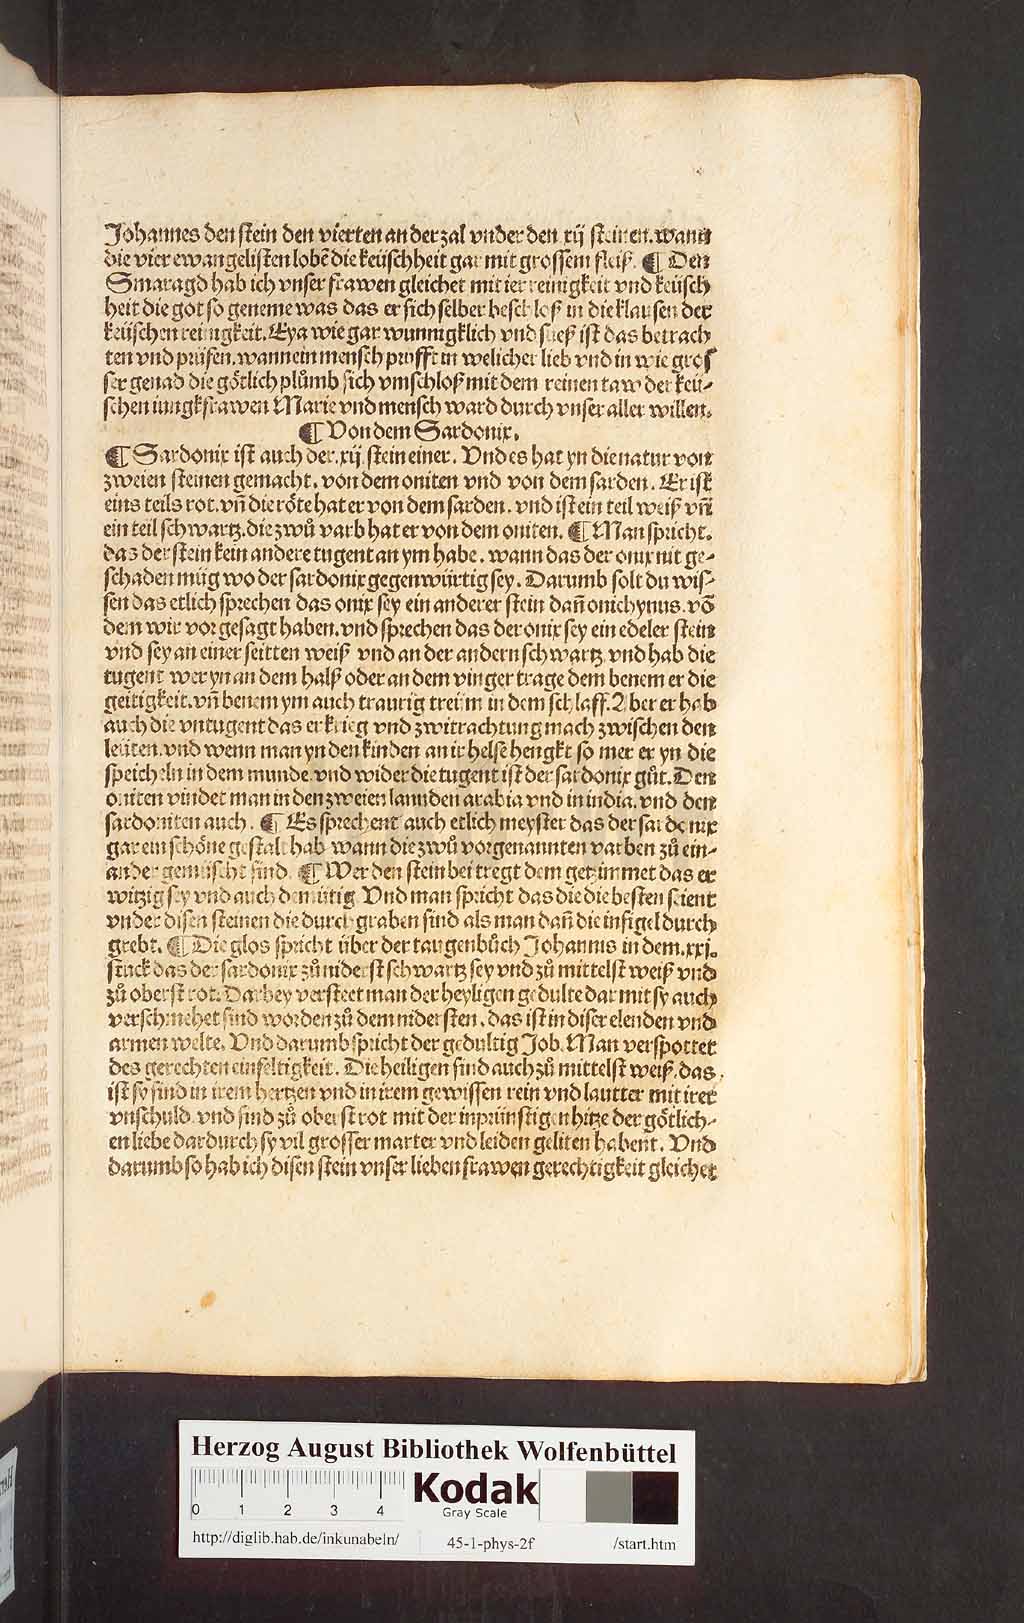 Johannes den stein den vierten an der zal vnder den xij steinen. wann
die vier ewangelisten lobē die keüschheit gar mit grossem fleiß. ¶ Den
Smaragd hab ich vnser frawen gleichet mit ier reinigkeit vnd keüsch
heit die got so geneme was das er sich selber beschloß in die klausen der
keüschen reinigkeit. Eya wie gar wunnigklich vnd süeß ist das betrach
ten vnd prüfen. wann ein mensch prüfft in welicher lieb vnd in wie gros
ser genad die götlich plůmb sich vmschloß mit dem reinen taw der keü-
schen iungkfrawen Marie vnd mensch ward durch vnser aller willen.
¶ Von dem Sardonix.
¶ Sardonix ist auch der. xij. stein einer. Vnd es hat yn die natur von
zweien steinen gemacht. von dem oniten vnd von dem sarden. Er ist
eins teils rot. vn̄ die röte hat er von dem sarden. vnd ist ein teil weiß vn̄
ein teil schwartz. die zwů varb hat er von dem oniten. ¶ Man spricht.
daz der stein kein andere tugent an ym habe. wann das der onix nit ge-
schaden müg wo der sardonix gegenwürtig sey. Darumb solt du wis-
sen das etlich sprechen das onix sey ein anderer stein dan̄ onichynus. vō
dem wir vor gesagt haben. vnd sprechen das der onix sey ein edeler stein
vnd sey an einer seitten weiß vnd an der andern schwartz. vnd hab die
tugent wer yn an dem halß oder an dem vinger trage dem benem er die
geitigkeit. vn̄ benem ym auch traurig treüm in dem schlaff. Aber er hab
auch die vntugent das er krieg vnd zwitrachtung mach zwischen den
leüten. vnd wenn man yn den kinden an ir helse hengkt so mer er yn die
speicheln in dem munde. vnd wider die tugent ist der sardonix gůt. Den
oniten vindet man in den zweien lannden arabia vnd in india. vnd den
sardoniten auch. ¶ Es sprechent auch etlich meyster das der sardonix
gar ein schöne gestalt hab wann die zwů vorgenannten varben zů ein-
ander gemischt sind. ¶ Wer den stein bei tregt dem getzimmet das er
witzig sey vnd auch demütig Vnd man spricht das die die besten seient
vnder disen steinen die durchgraben sind als man dan̄ die insigel durch
grebt. ¶ Die glos spricht über der taugenbůch Johannis in dem. xxi.
stuck das der sardonix zů niderst schwartz sey vnd zů mittelst weiß vnd
zů oberst rot. Darbey versteet man der heyligen gedulte dar mit sy auch
verschmehet sind worden zů dem nidersten. das ist in diser elenden vnd
armen welte. Vnd darumb spricht der gedultig Job. Man verspottet
des gerechten einfeltigkeit. Die heiligen sind auch zů mittelst weiß. das
ist sy sind in irem hertzen vnd in irem gewissen rein vnd lautter mit irer
vnschuld. vnd sind zů oberst rot mit der inprünstigen hitze der götlich-
en liebe dardurch sy vil grosser marter vnd leiden geliten habent. Vnd
darumb so hab ich disen stein vnser lieben frawen gerechtigkeit gleichet
Herzog August Bibliothek Wolfenbüttel
0 1 2 3 4
Kodak
Gray Scale
http://diglib.hab.de/inkunabeln/ 45-1-phys-2f /start.htm